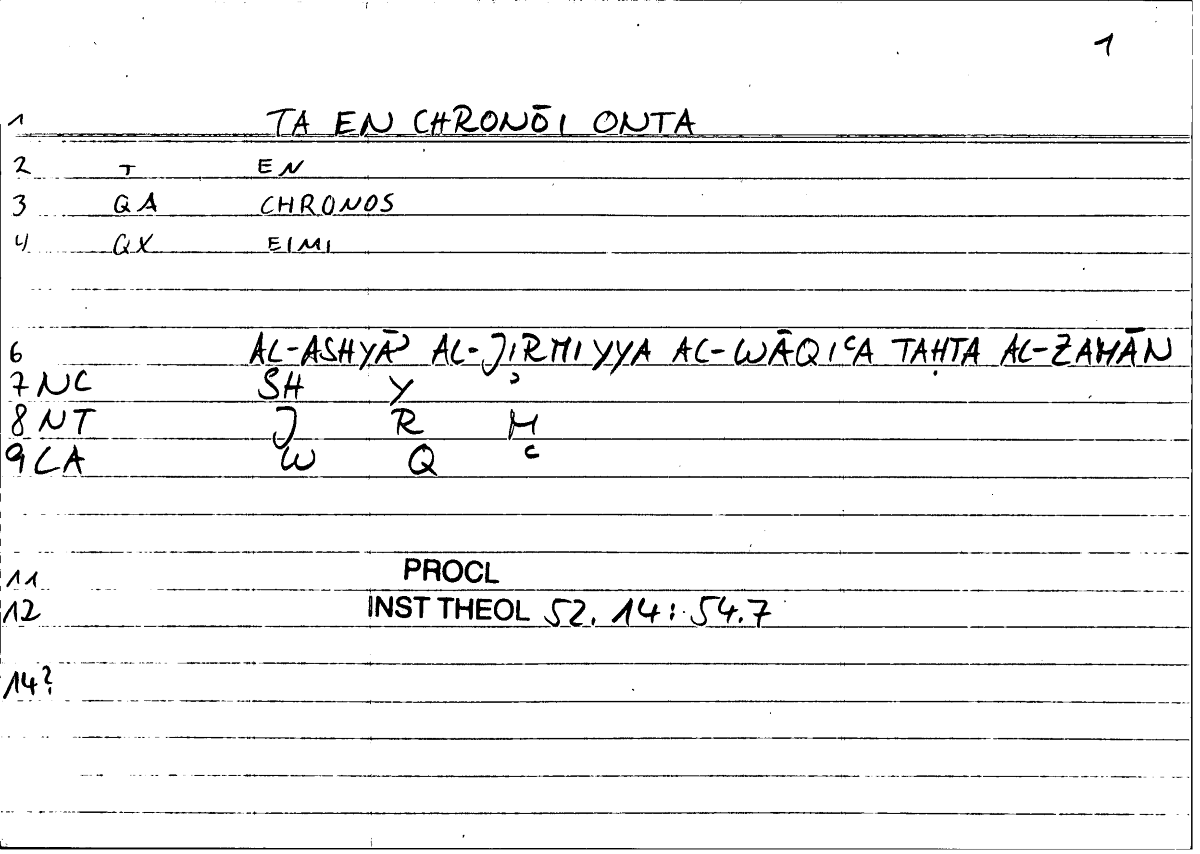 1
1 TA EN CHRONŌI ONTA
2 T EN
3 QA CHRONOS
4 QX EIMI
6 AL-ASHYĀʾ AL-JIRMIYYA AL-WĀQIʿA TAḤTA AL-ZAMĀN
7 NC SH Y ʾ
8 NT J R M
9 CA W Q ʿ
11 PROCL
12 INST THEOL 52. 14 : 54.7
14?